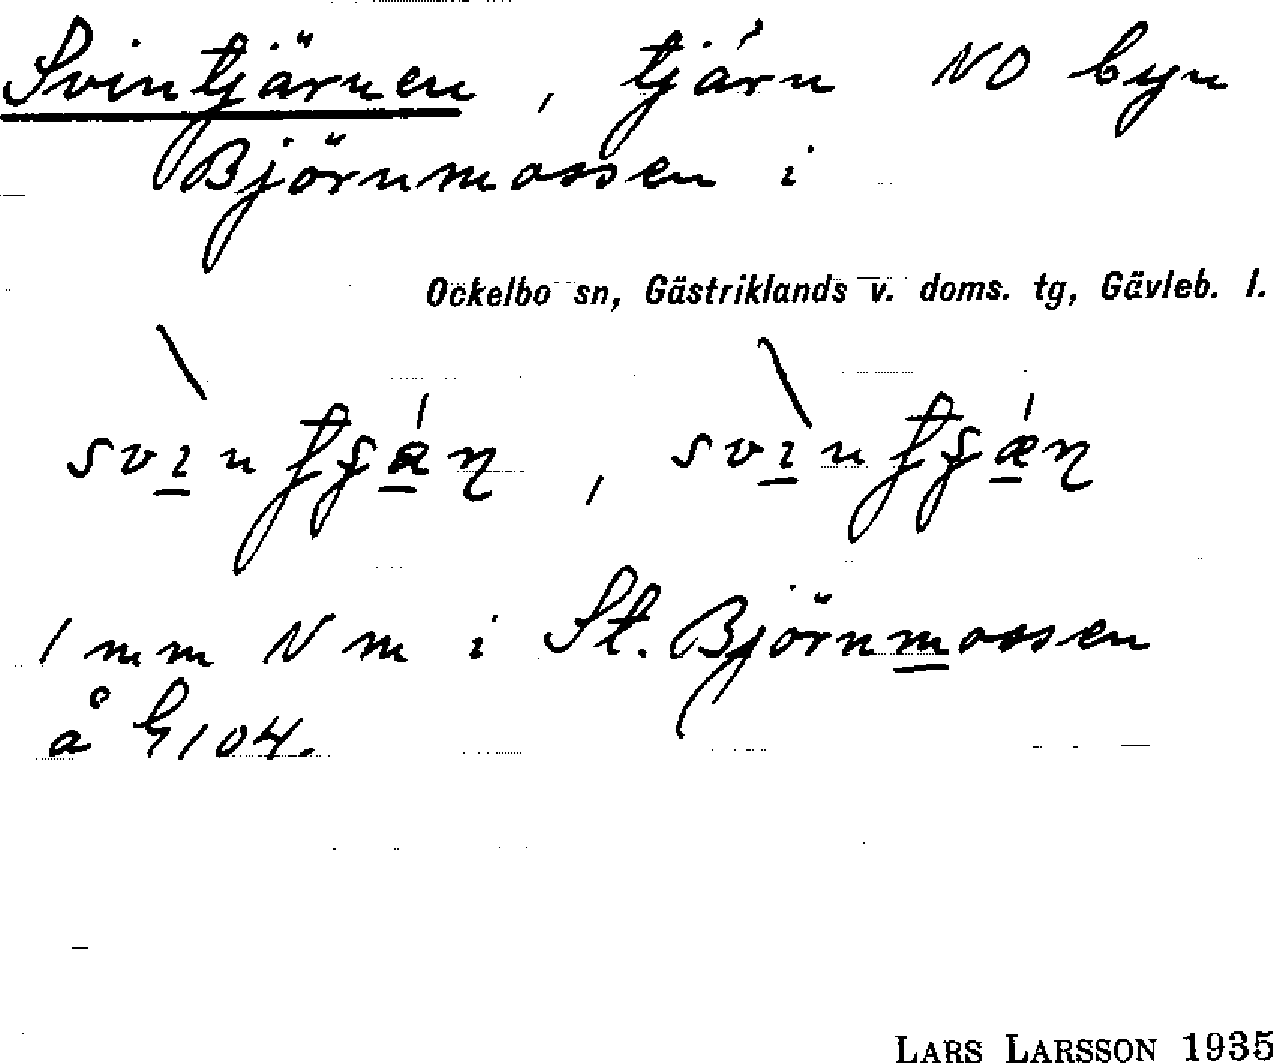 Svintjärnen, tjärn NO byn
Björnmossen i
Ockelbo sn, Gästriklands v. doms. tg, Gävleb. l.
1 mm N m i St. Björnmossen
å G 104.
LARS LARSSON 1935